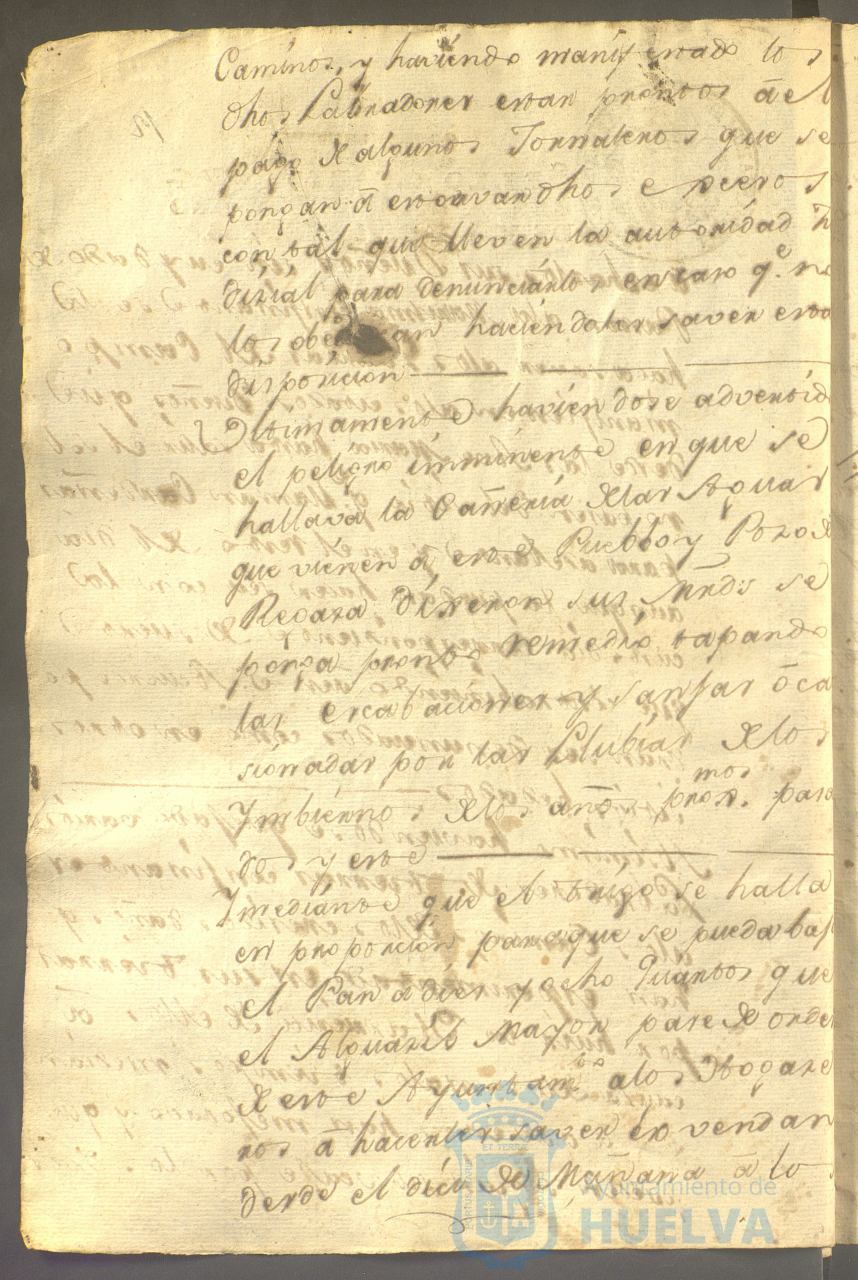 Caminos, y haviendo manifestado los
dhos Labradores estar prontos â el
pago de algunos Jornaleros que se
pongan â escavar dhos esteros
con tal que lleven la authoridad Ju
dizial para denunciarlos en caso q.e no
los obedezcan haciendoles saver esta
disposicion
Ultimamente haviendose advertid
el peligro imminente en que se
hallava la Cañeria de las Aguas
que vienen â este Pueblo y Pozo de
dixeron sus Mrds se
ponga pronto remedio tapando
las escabaciones y sanjas oca
sionadas por las Llubias de los
Ymbiernos de los años prox.mos pasa
dos y este
Ymediante que el trigo se halla
en proporcion para que se pueda baj
el Pan a diez y ocho quartos que
el Alguazil Mayor pase de orden
de este Ayuntam.to a los Hogaze
ros â hacerles saver lo vendan
desde el dia de Mañana â lo
ET TERRAE
Ayuntamiento de
HUELVA